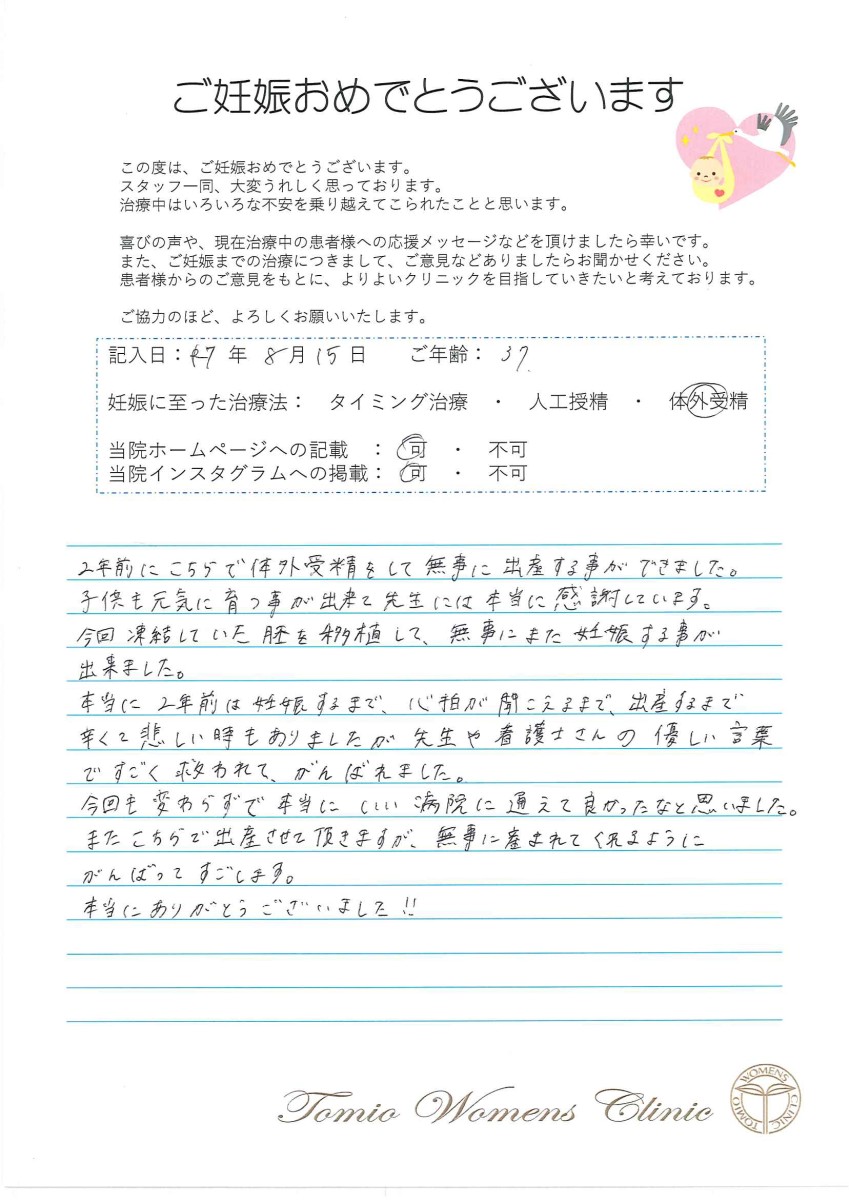 ご妊娠おめでとうございます
この度は、ご妊娠おめでとうございます。
スタッフ一同、大変うれしく思っております。
治療中はいろいろな不安を乗り越えてこられたことと思います。
喜びの声や、現在治療中の患者様への応援メッセージなどを頂けましたら幸いです。
また、ご妊娠までの治療につきまして、ご意見などありましたらお聞かせください。
患者様からのご意見をもとに、よりよいクリニックを目指していきたいと考えております。
ご協力のほど、よろしくお願いいたします。
記入日：R7 年 8月15日 ご年齢： 37
妊娠に至った治療法： タイミング治療 ・ 人工授精 ・ 体外受精
当院ホームページへの記載 ： 可 ・ 不可
当院インスタグラムへの掲載： 可 ・ 不可
2年前にこちらで体外受精をして無事に出産する事ができました。
子供も元気に育つ事が出来て先生には本当に感謝しています。
今回凍結していた胚を移植して、無事にまた妊娠する事が
出来ました。
本当に2年前は妊娠するまで、心拍が聞こえるまで、出産するまで
辛くて悲しい時もありましたが先生や看護士さんの優しい言葉
ですごく救われて、がんばれました。
今回も変わらずで本当にいい病院に通えて良かったなと思いました。
またこちらで出産させて頂きますが、無事に産まれてくれるように
がんばってすごします。
本当にありがとうございました!!
Tomio Womens Clinic
TOMIO WOMENS CLINIC